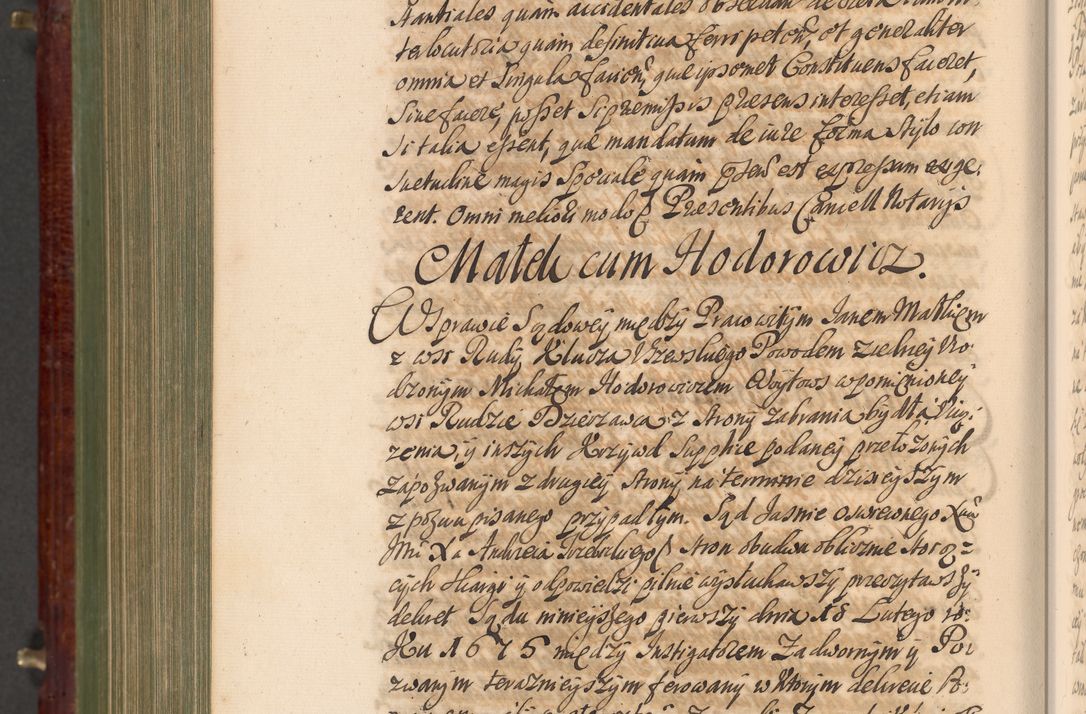 stantiales quam accidentales
terlocutoria quam definitiva ferri peten, et generaliter
omnia et singula facien, quæ ipsemet Constituens faceret,
sive facere, posset si præmissis præsens interesset, etiam
si talia essent, quæ mandatum de iure forma stylo con
suetudine magis speciale quam est expressum exige:
rent. Omni meliori modo Præsentibus Cancell Notarijs
Matek cum Hodorowicz.
W sprawie Sądowey między Pracowitym Janem Matkiem
z wsi Rudy Klucza Powodem z iedney Uro:
dzonym Michałem Hodorowiczem Woytows wpomnioney
wsi Rudzie Dzierzawca z strony zabrania bydła, Wię:
zenia, y inszych Krzywd Supplice podaney przełozonych
zapozwanym z drugiey strony na terminie dzisieyszym
z pozwu pisanego przypadłym. Sąd Jasnie oswieconego
Jmi Xa Andrzeia stron obudwu oblicznie stoią=
cych Skargi y odpowiedzi pilnie wysłuchawszy przeczytawszy
dekret Sądu ninieyszego pierwszy dnia 18 Lutego ro:
Ku 1675 między Instigatorem Zadwornym y Po:
zwanym teraznieyszym ferowany w Ktorym dekrecie